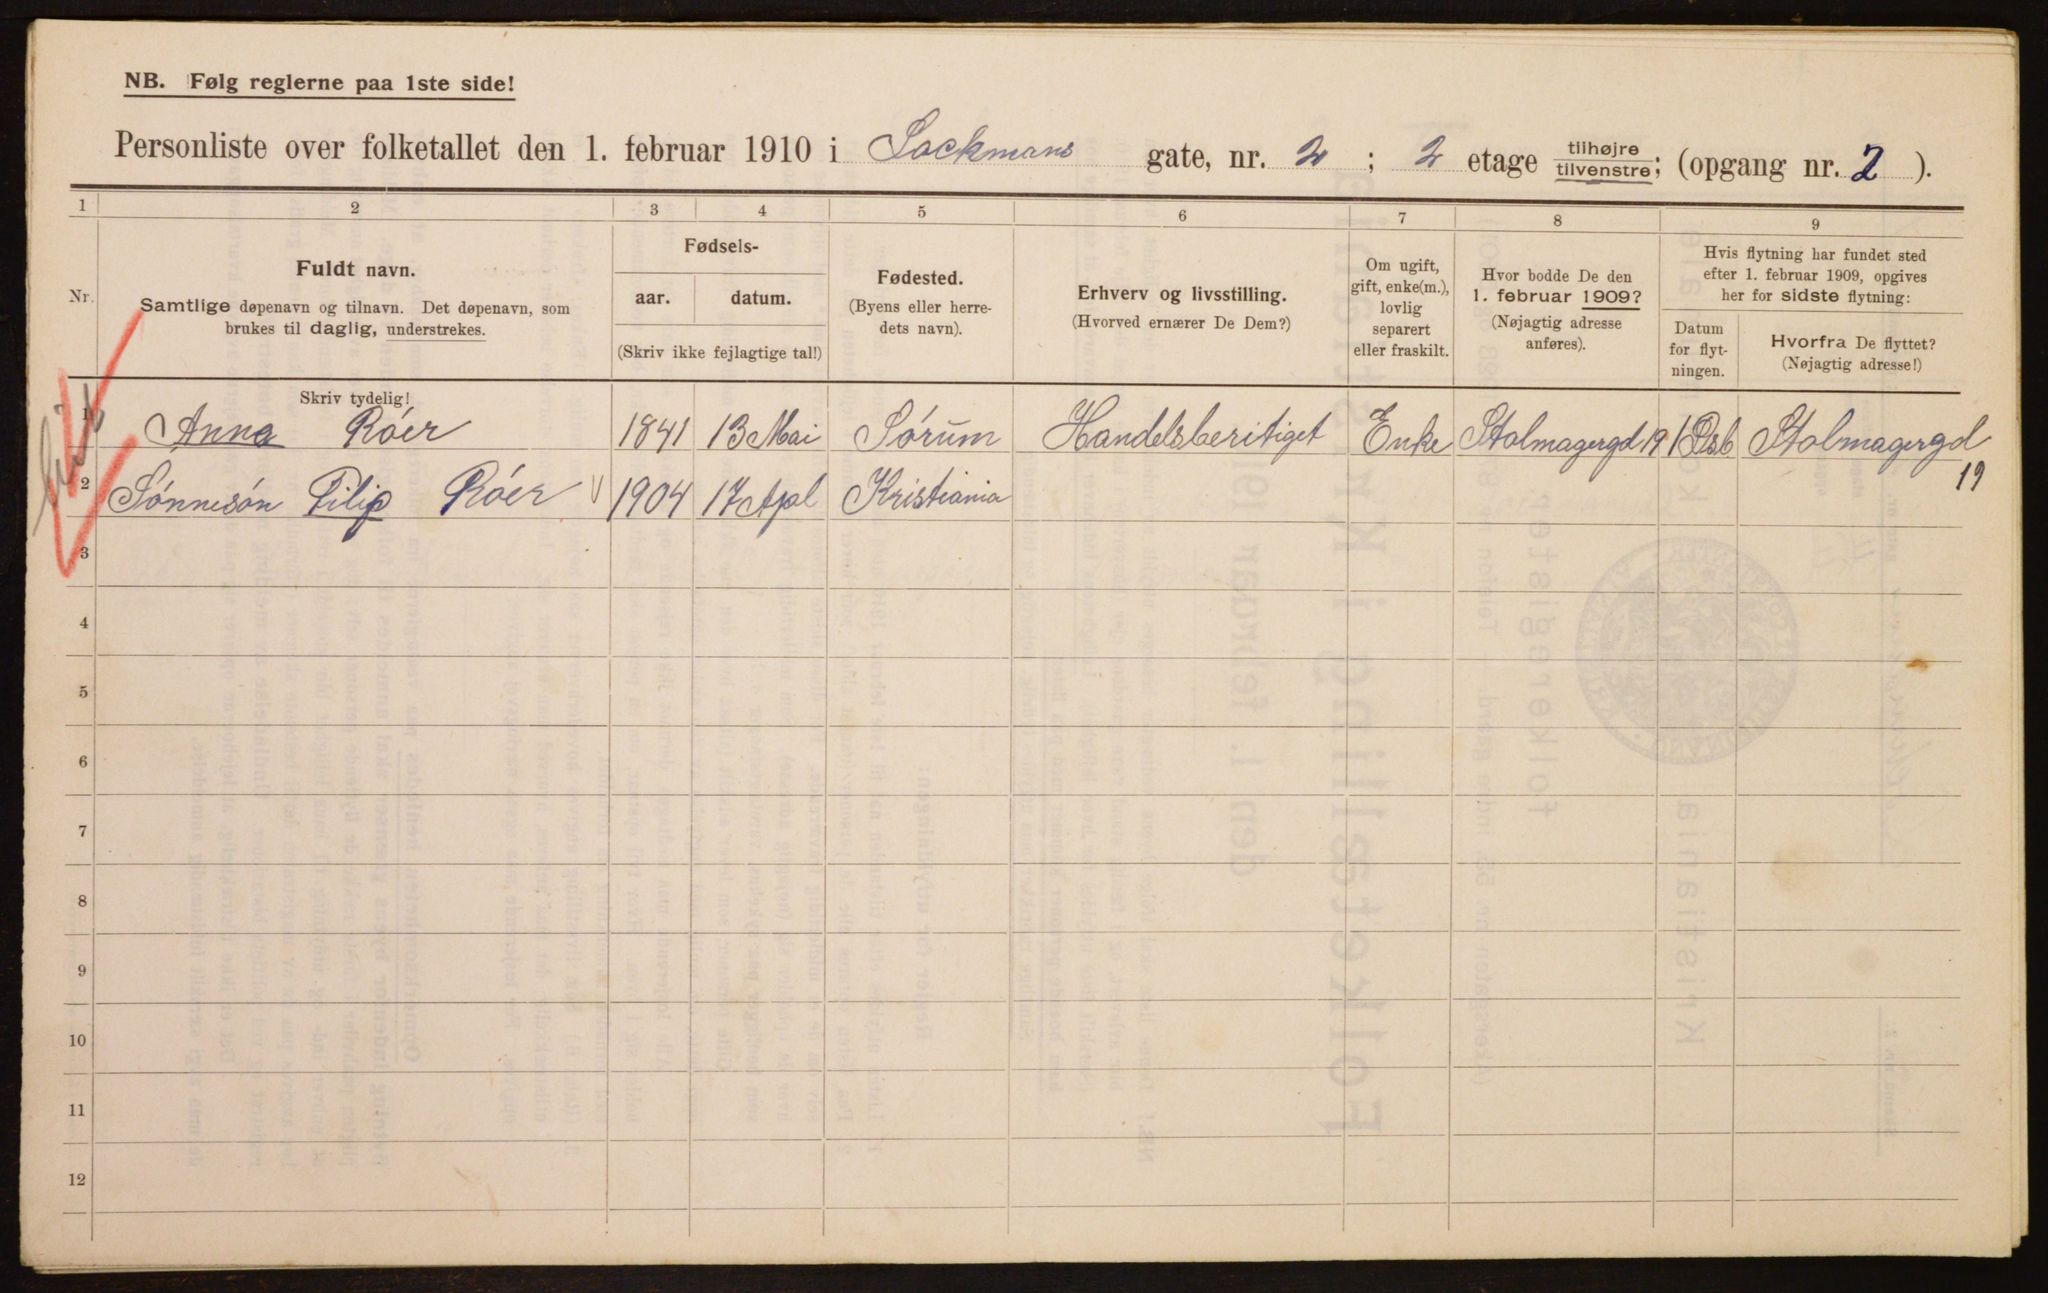 NB. Følg reglerne paa 1ste side!
Personliste over folketallet den 1. februar 1910 i Sockmans gate, nr. 2 ; 2 etage tilhøjre/tilvenstre; (opgang nr. 2 ).
1 2 3 4 5 6 7 8 9
Nr.
Fuldt navn.
Samtlige døpenavn og tilnavn. Det døpenavn, som
brukes til daglig, understrekes.
Fødsels-
aar. datum.
(Skriv ikke fejlagtige tal!)
Fødested.
(Byens eller herre-
dets navn).
Erhverv og livsstilling.
(Hvorved ernærer De Dem?)
Om ugift,
gift, enke(m.),
lovlig
separert
eller fraskilt.
Hvor bodde De den
1. februar 1909?
(Nøjagtig adresse
anføres).
Hvis flytning har fundet sted
efter 1. februar 1909, opgives
her for sidste flytning:
Datum
for flyt-
ningen.
Hvorfra De flyttet?
(Nøjagtig adresse!)
Skriv tydelig!
1 Anna Róer 1841 13 Mai Sórum Handelsberitiget Enke Stolmagergd 19 1 Stolmagergd
19
2 Sónnesón Filip Róer 1904 17 Apl Kristiania
3
4
5
6
7
8
9
10
11
12